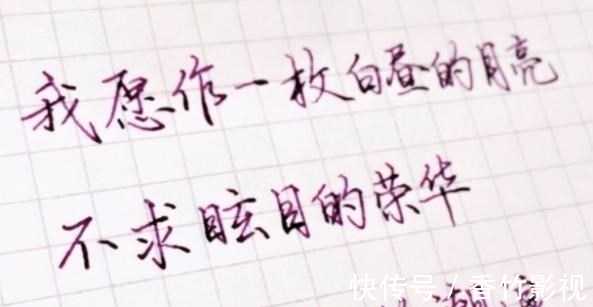 我愿作一枚白昼的月亮
不求眩目的荣华
快传号／香竹影视